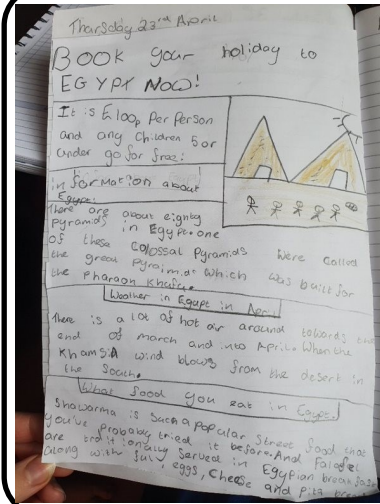 Thursday 23rd April
BOOK your holiday to
EGYPT NOW!
It is £100p Per Person
and any Children 5 or
under go for free.
information about
Egypt.
There are about eighty
pyramids in Egypt. one
of these colossal pyramids were called
the great pyraimids which was built for
the pharaoh Khufu.
Weather in Egypt in April
There is a lot of hot air around towards the
end of march and into April. When the
KhamSiA wind blows from the desert in
the South.
What food you eat in Egypt.
Shawarma is such a popular Street food that
you've probably tried it before. And falafel
are traditionally served in Egypian breakfast
along with ful, eggs, cheese and pita bread